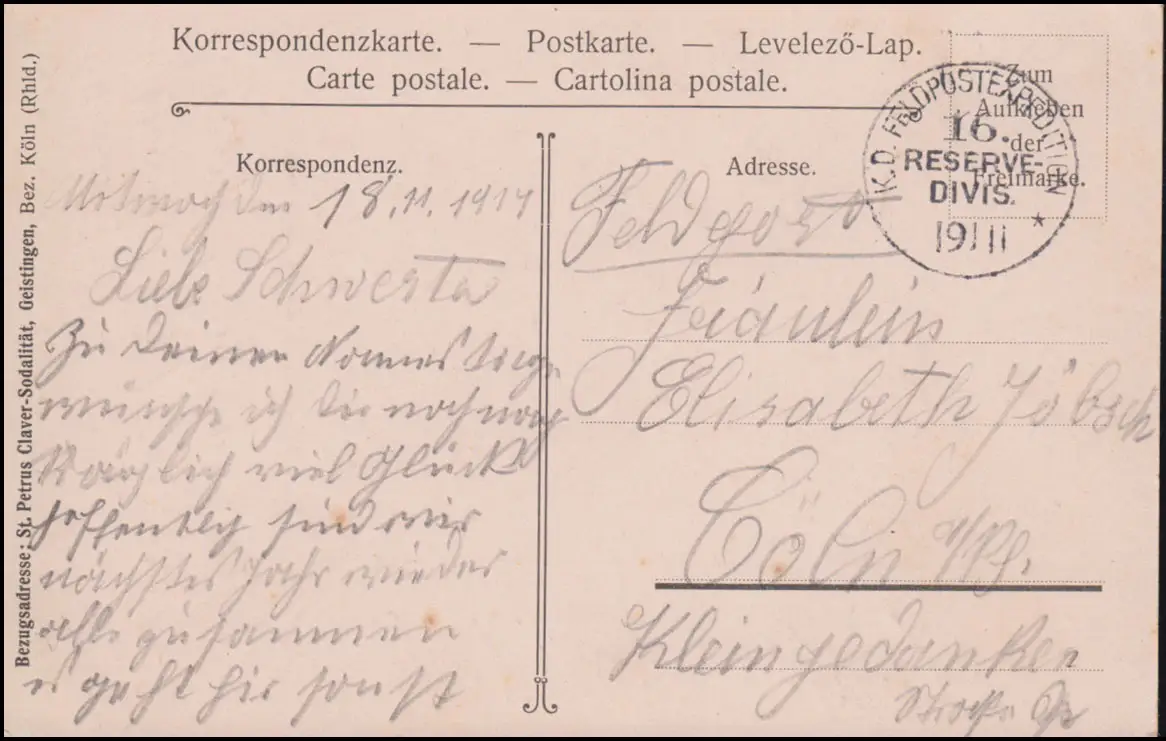 Korrespondenzkarte. — Postkarte. — Levelező-Lap.
Carte postale. — Cartolina postale.
Zum
Aufkleben
der
Freimarke.
K.D. FELDPOSTEXPEDITION
16.
RESERVE-
DIVIS.
19/11
*
Bezugsadresse: St. Petrus Claver-Sodalität, Geistingen, Bez. Köln (Rhld.)
Korrespondenz.
Mitwoch den 18.11.1914
Liebe Schwester
Zu Deinem Namenstage
wünsche ich Dir noch
viel Glück
hoffentlich sind wir
nächstes Jahr wieder
alle zusammen
geht hir sonst
Adresse.
Feldpost
Fräulein
Elisabeth
Cöln a/Rh.
Kleingedanken